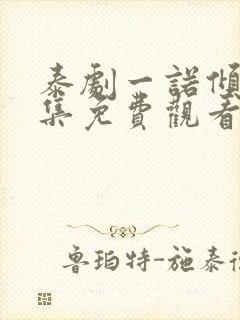 泰劇一諾傾
集免費觀看
魯珀特-施泰德